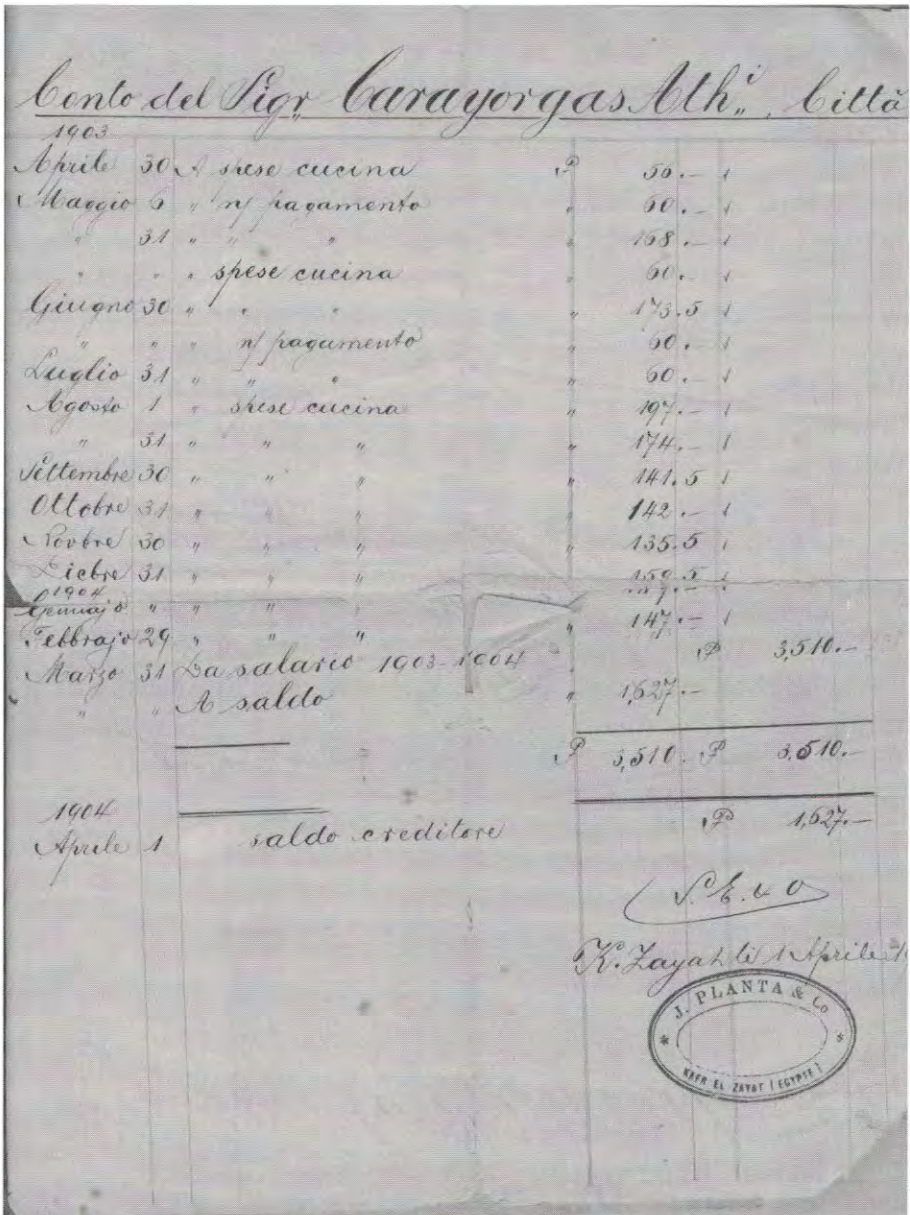 Conto del Sigr. Carayorgas Ath.i, Città
1903
Aprile 30 A spese cucina P 56.-
Maggio 6 " n/ pagamento " 60.-
" 31 " " " " 168.-
" " " spese cucina 60.-
Giugno 30 " " " " 173.5
" " " n/ pagamento " 60.-
Luglio 31 " " " " 60.-
Agosto 1 " spese cucina " 197.-
" 31 " " " " 174.-
Settembre 30 " " " " 141.5
Ottobre 31 " " " " 142.-
Novbre 30 " " " " 135.5
Dicbre 31 " " " 159.5
1904
Gennajo " " " "
Febbrajo 29 " " " " 147.-
Marzo 31 Da salario 1903-1904 P 3,510.-
" " A saldo " 1,627.-
P 3,510.- P 3,510.-
1904
Aprile 1 saldo creditore P 1,627.-
S. E. & O
K. Zayat li 1 Aprile
J. PLANTA & Co.
KAFR EL ZAYAT (EGYPTE)